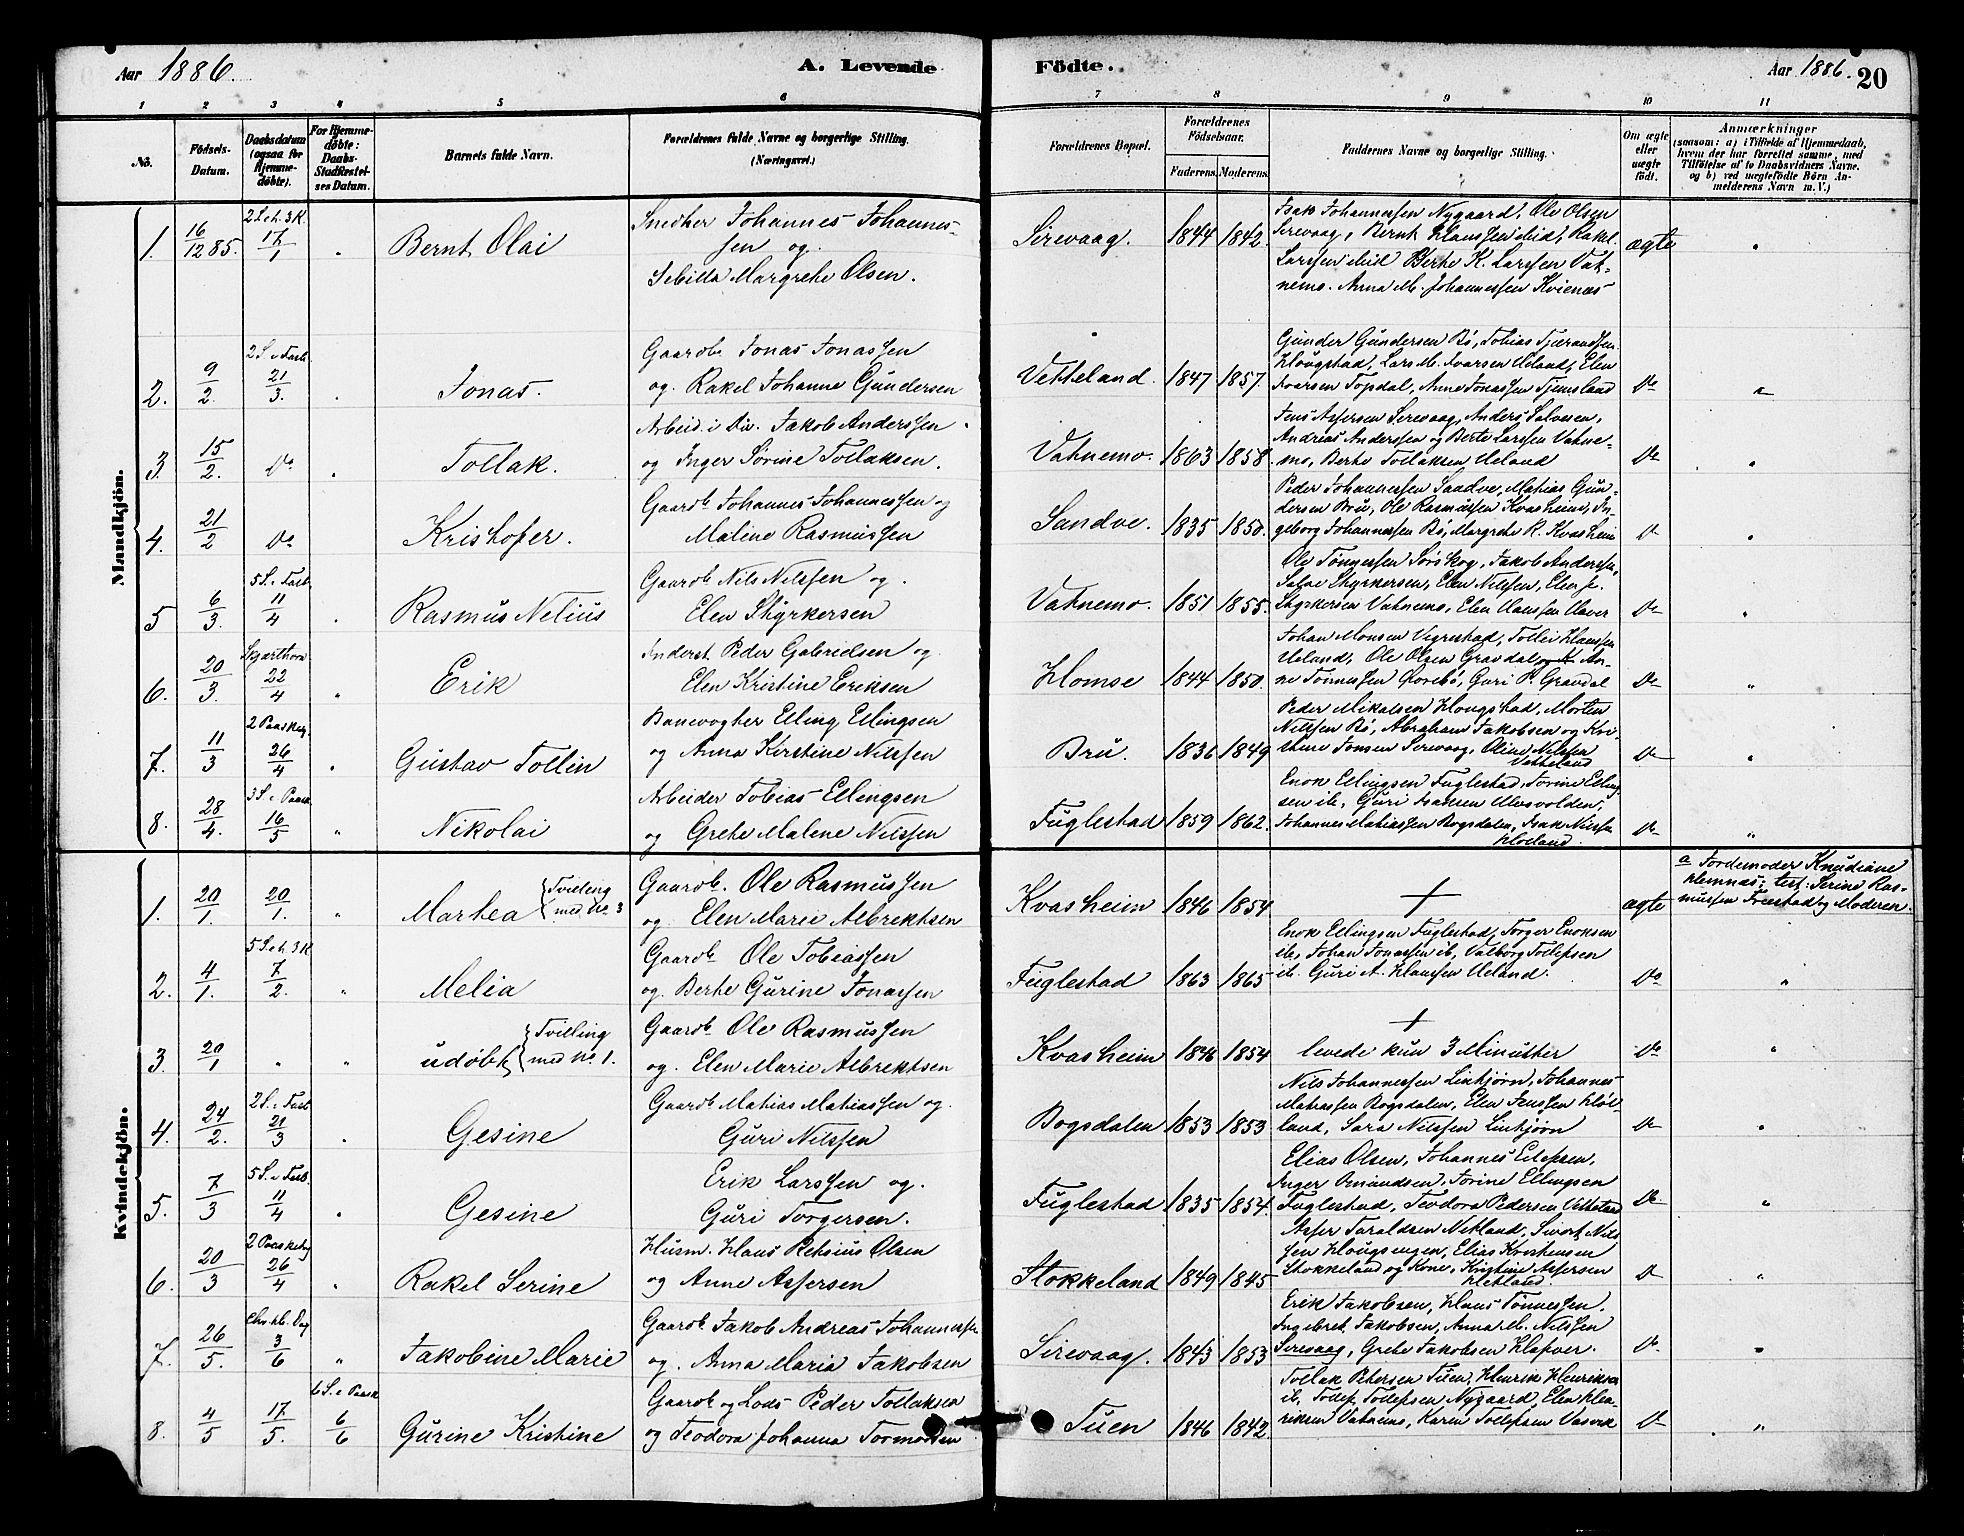 Aar 1886.
A. Levende
Födte.
Aar 1886.
20
1 2 3 4 5 6 7 8 9 10 11
No.
Födsels-
Datum.
Daabsdatum
(ogsaa for
Hjemme-
döbte).
For Hjemme-
döbte:
Daabs-
Stadfæstel-
ses Datum.
Barnets fulde Navn.
Forældrenes fulde Navne og borgerlige Stilling.
(Næringsvei.)
Forældrenes Bopæl.
Forældrenes
Födselsaar.
Faderens. Moderens.
Faddernes Navne og borgerlige Stilling.
Om ægte
eller
uægte
födt.
Anmærkninger
(saasom: a) i Tilfælde af Hjemmedaab,
hvem der har forrettet samme, med
Tilföielse af to Daabsvidners Navne.
og b) ved uægtefödte Börn An-
melderens Navn m. V.)
Mandkjön.
1. 16/12 85. 2 S. e. h. 3 K. 17/1 " Bernt Olai
Snedker Johannes Johannes-
sen og
Sebilla Margrethe Olsen.
Sirevaag. 1844 1842.
Isak Johannessen Nygaard, Ole Olsen
Sirevaag, Bernt Hanssen ibid, Rakel
Larssen ibid Berte K. Larssen Vat-
nemo. Anna M. Johannessen Kvienes
ægte "
2. 9/2. 2 S. i Fast. 21/3. " Jonas.
Gaardb. Jonas Jonassen
og Rakel Johanne Gundersen
Vetteland. 1847 1857.
Gunder Gundersen Bö, Tobias Tjerandsen
Hougstad, Lars M. Ivarsen Ueland, Elen
Ivarsen Topdal, Anne Jonassen Tjemsland
Do "
3. 15/2. Do " Tollak.
Arbeid. i Div. Jakob Anderssen
og Inger Sørine Tollaksen.
Vatnemo. 1863 1858.
Jens Asersen Sirevaag, Anders Salvesen,
Andreas Anderssen og Berte Larssen Vatne-
mo, Berte Tollaksen Ueland
Do "
4. 21/2 Do Kristofer.
Gaardb. Johannes Johannessen og
Malene Rasmussen
Sandve. 1835 1850.
Peder Johannessen Sandve, Mathias Gun-
dersen Bru, Ole Rasmussen Kvasheim, In-
geborg Johannessen Bö, Margrete R. Kvasheim
Do "
5 6/3. 5 S. i Fast. 11/4 " Rasmus Nelius
Gaardb. Nils Nilssen og
Elen Styrkersen
Vatnemo. 1851 1855.
Ole Tönnessen Sörskog, Jakob Anderssen,
Salve Styrkersen, Elen Nilssen, Elen J.
Styrkersen Vatnemo, Elen Hanssen Haver
Do "
6. 20/3. Skjærthors. 22/4 " Erik
Inderst Peder Gabrielsen og
Elen Kristine Eriksen
Homse 1844 1850.
Johan Monsen Vigrestad, Tollei Hanssen
Ueland, Ole Olsen Gravdal, An-
ne Tönnessen Gorebö, Guri P. Gravdal
Do "
7. 11/3 2 Paaskeg. 26/4 " Gustav Tollin
Banevogter Elling Ellingsen
og Anna Kirstine Nilssen
Bru. 1836 1849
Peder Mikalsen Hougstad, Morten
Nilssen Bö, Abraham Jakobsen og Kri-
stine Jonsen Sirevaag, Oline Nilssen
Vetteland
Do "
8. 28/4. 3 S. e. Paask. 16/5 " Nikolai
Arbeider Tobias Ellingsen
og Grethe Malene Nilssen
Fuglestad 1859 1862.
Enok Ellingsen Fuglestad, Torine Elling-
sen ib., Guri Isaksen Mosvolden,
Johannes Mathiassen Bogsdalen, Isak Nilssen
Hoiland.
Do "
Kvindekjön.
1. 20/1. 20/1. " Martea {Tvilling med No. 3
Gaardb. Ole Rasmussen
og Elen Marie Albrektsen
Kvasheim 1846 1854
+
ægte
a Jordemoder Knudiane
Hemnæs; test: Serine Ras-
mussen Frøistad og Moderen.
2. 4/1. 5 S. e. h. 3 K. 7/2. " Melia
Gaardb. Ole Tobiassen
og. Berte Gurine Jonassen
Fuglestad 1863 1865
Enok Ellingsen Fuglestad, Torger Enoksen
ib, Johan Jonassen ib, Valborg Tollefsen
ib. Guri A. Hanssen Ueland.
Do "
3 20/1 " " udøbt {Tvilling med No. 1.
Gaardb. Ole Rasmussen
og. Elen Marie Albrektsen
Kvasheim 1846 1854
+
levede kun 3 Minutter
Do "
4. 24/2. 2 S. i Fast 21/3 " Gesine
Gaardb. Mathias Mathiassen og
Guri Nilssen
Bogsdalen 1853 1853
Nils Johannessen Linkjørn, Johannes
Mathiassen Bogsdalen, Elen Jenssen Høi-
land, Sara Nilssen Linkjørn
Do "
5. 7/3 5 S. i Fast. 11/4 " Gesine
Erik Larssen og.
Guri Torgersen.
Fuglestad 1835 1854
Elias Olsen, Johannes Edefsen,
Inger Omundsen, Torine Ellingsen
Fuglestad, Teodora Pedersen Vetteland
Do. "
6. 20/3 2 Paaskedg 26/4 " Rakel Serine
Husm. Hans Petsius Olsen
og Anne Asersen
Stokkeland 1849 1845
Aser Taraldsen Netland, Sivert Nils-
sen Hougsengen, Elias Kristensen
Stokkeland og Kone, Kristine Asersen
Hetland.
Do "
7. 26/5. Chr. hl. Dag 3/6 " Jakobine Marie
Gaardb Jakob Andreas Johannessen
og. Anna Maria Jakobsen
Sirevaag. 1843 1853
Erik Jakobsen, Hans Tönnessen.
Ingebret Jakobsen, Anna M. Nilssen
Sirevaag, Grete Jakobsen Hafver.
Do. "
8. 4/5 17/5. 6 S. e. Paask 6/6 Gurine Kristine
Gaardb og Lods Peder Tollaksen
og Teodora Johanna Tormodsen
Tuen 1846 1842.
Tollak Petersen Tuen, Henrik Henriksen
ib, Tollef Tollefsen Nygaard, Elen Hen-
riksen Vatnemo, Karen Tollefsen Vasvik
Do "